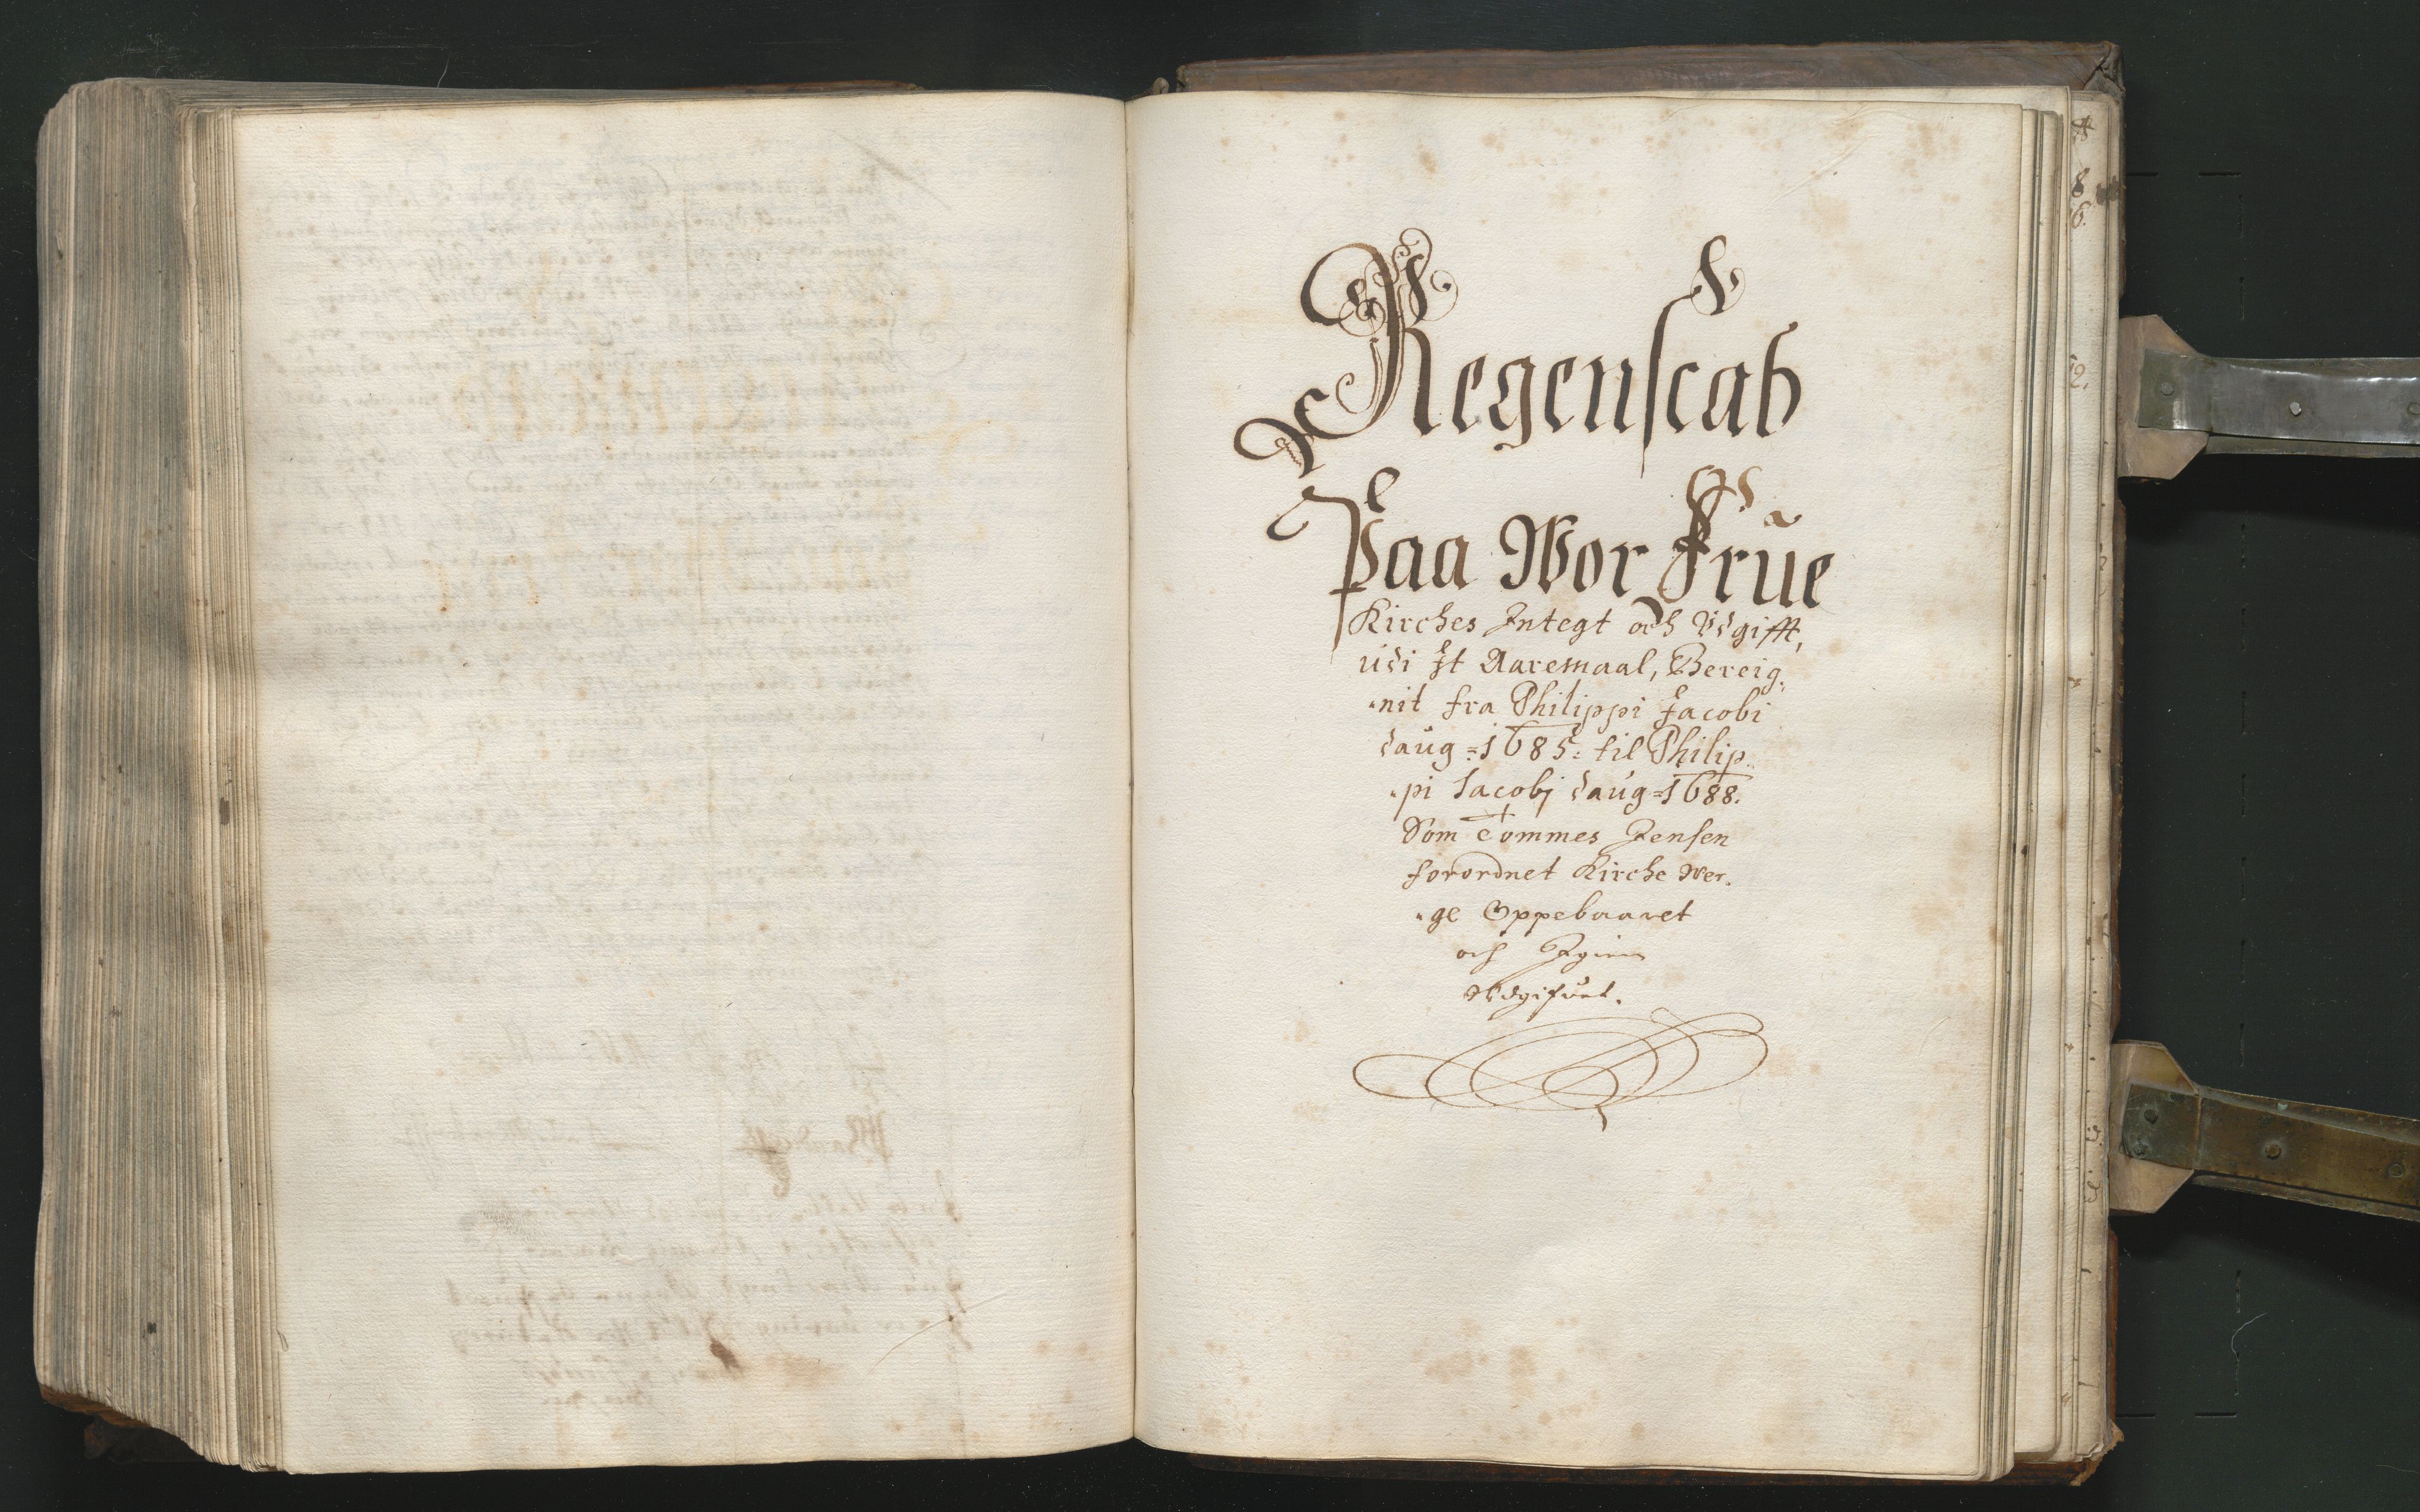 Regenscab
Paa Wor Frue
Kirches Integt och Vdgifft,
udi Jt Aaremaal, Bereig-
-nit fra Philippi Jacobi
daug = 1685: til Philip-
-pi Jacobj daug = 1688.
Som Tommes Jensen
forordnet Kirche Wer-
-ge Oppebaaret
och Igien
Vdgifuet.